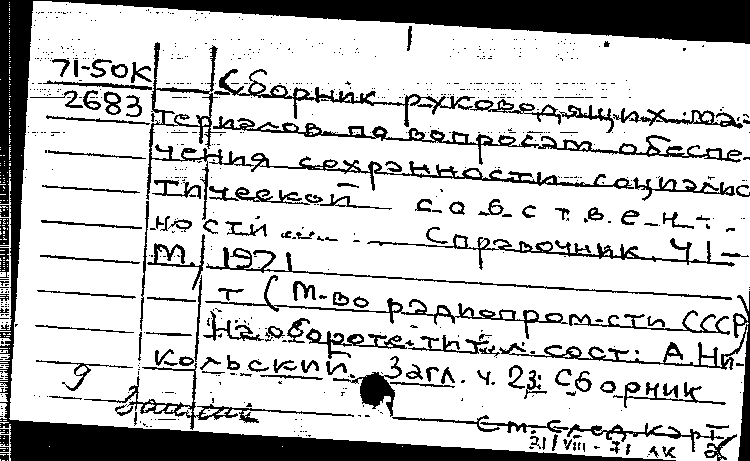 71-50К
2683
Сборник руководящих ма-
териалов по вопросам обеспе-
чения сохранности социалис
тической собствен-
ности ... . Справочник. Ч.1-
М., 1971
т (М-во радиопром-сти СССР)
На обороте тит. л. сост.: А. Ни-
кольский. Загл. ч. 2-3: Сборник
9
см. след. карт.
31/VIII-71